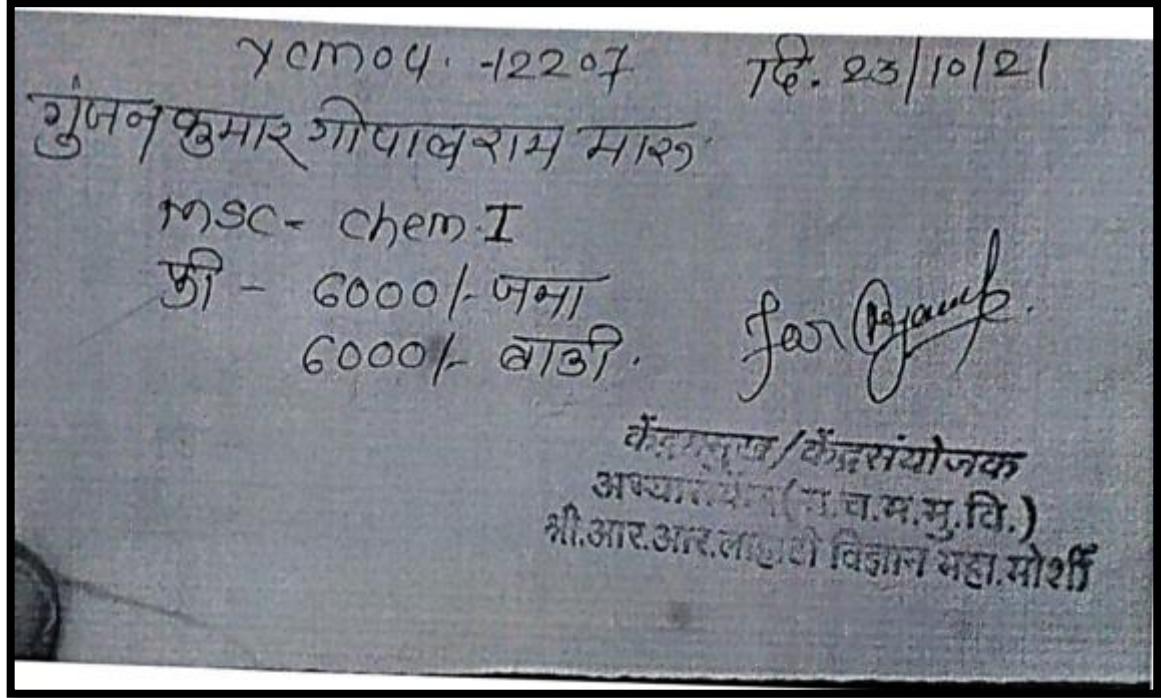 YCMOU. -12207 दि. 23/10/21
गुंजनकुमार गोपालराम मारू
MSC- Chem.I
फी - 6000/- जमा
6000/- बाकी.
for
केंद्रप्रमुख/केंद्रसंयोजक
अभ्यासकेंद्र(य.च.म.मु.वि.)
श्री.आर.आर.लाहोटी विज्ञान महा.मोर्शी